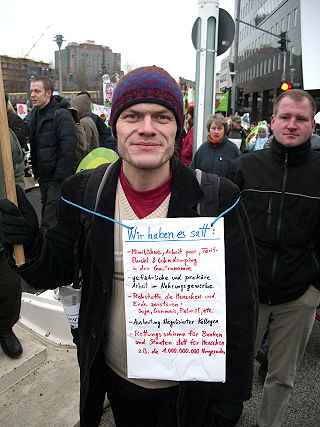 Wir haben es satt:
- Minilöhne, Arbeit ohne Tarif-
flucht & Lohndumping
in der Gastronomie
- gefährliche und prekäre
Arbeit im Nahrungsgewerbe
- Rohstoffe die Menschen und
Erde zerstören:
Soja, Genmais, Palmöl, etc.
- Ausbeutung illegalisierter Kollegen
- Rettungsschirme für Banken
und Staaten statt für Menschen
z.B. die 1.000.000.000 Hungernden